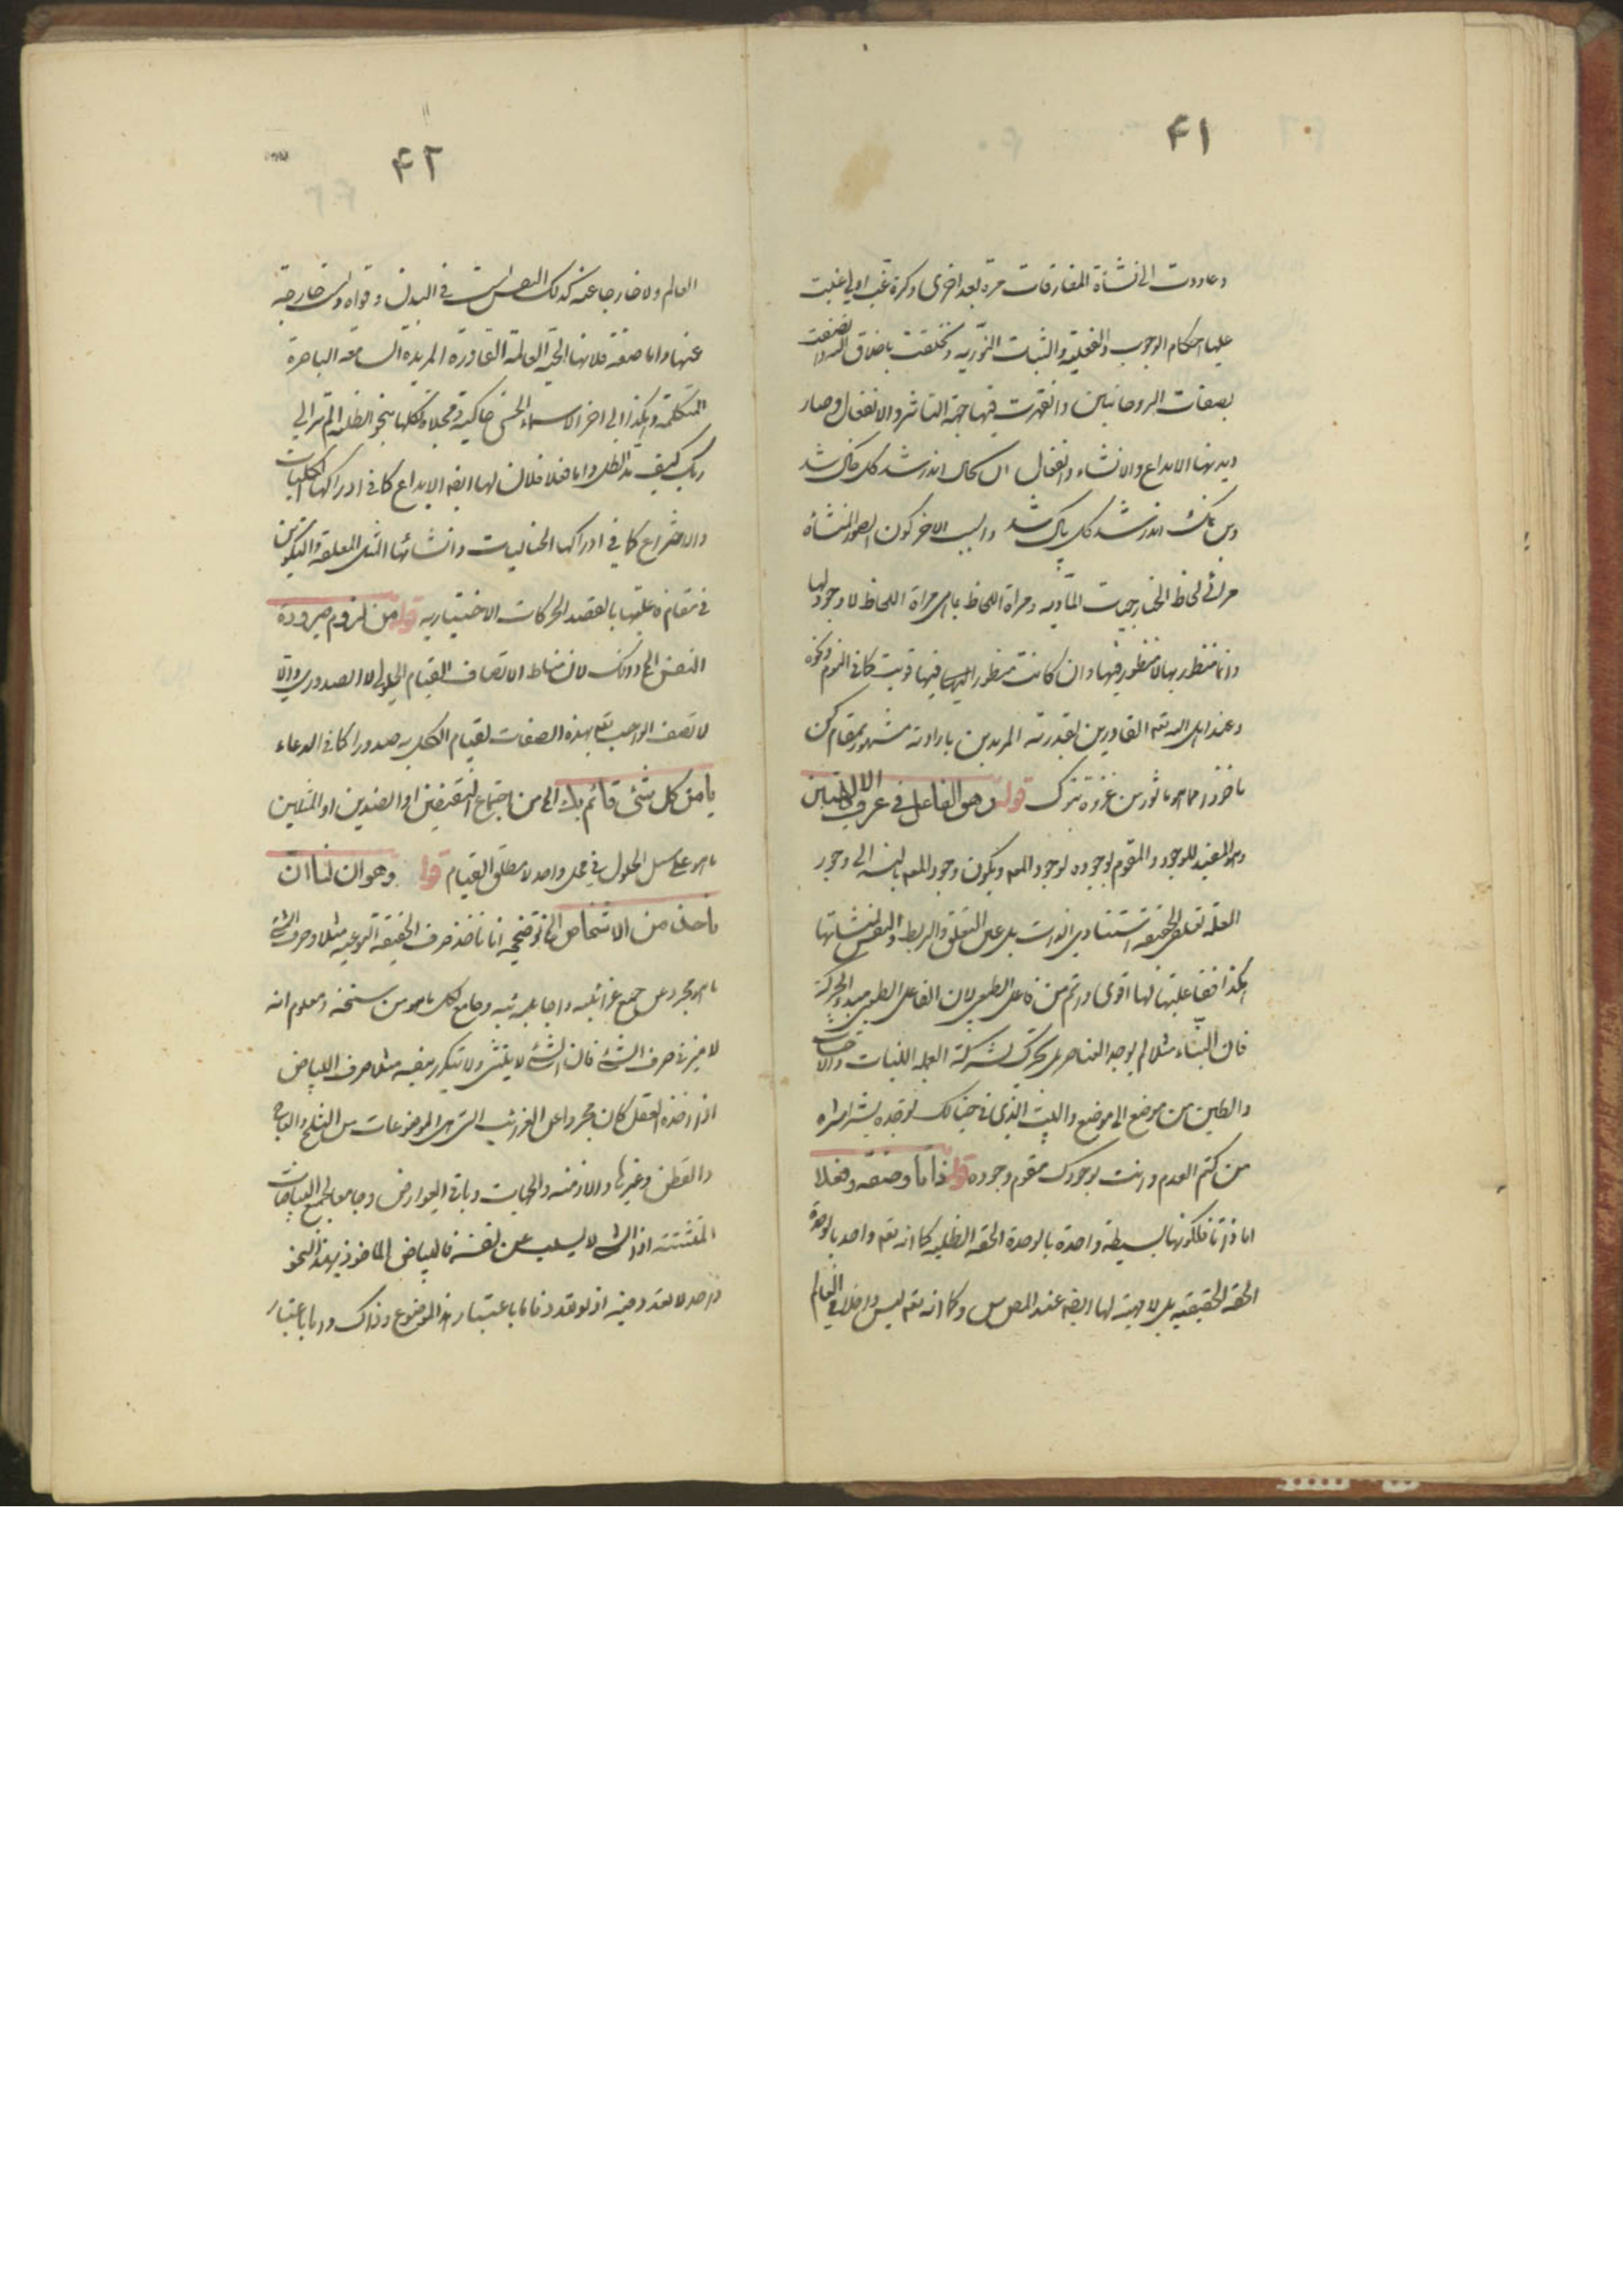 ۴۱
وعاودت الی نشاة المفارقات مرة بعد اخری وکرة غب اولی غلبت
علیها احکام الوجوب والفعلیة والثبات النوریه وتخلقت باخلاق الله واتصفت
بصفات الروحانیین وانقهرت فیها جهة التاثر والانفعال وصار
دیدنها الابداع والانشاء والفعال
اندر شد کل پاک شد والسبب الاخر کون الصور المنشأة
مرائی لحاظ الخارجیات المادیه ومراة اللحاظ بما هی مراة اللحاظ لا وجود لها
وانما منظور بها لا منظور فیها وان کانت منظورا الیها فیها قویت کما فی النوم ونحوه
وعند اهل الله تعه القادرین بقدرته المریدین بارادته مشهور بمقام کن
ماخوذا مما هو ماثور من غزوة تبوک قوله وهو الفاعل فی عرف الالهیین
وهو المفید للوجود والمقوم بوجوده لوجود المعه ویکون وجود المعه بالنسبة الی وجود
العلة تعلقی الحقیقه استنادی الذات بل عین التعلق والربط والنفس لمنشاتها
هکذا ففاعلیتها لها اقوی واتم من فاعل الطبیعی لان الفاعل الطبیعی مبدء الحرکة
فان البناء مثلا لم یوجد العناصر بل تحرک بشرکة العمله اللبنات والاخشاب
والطین من موضع الی موضع والبیت الذی فی خیالک توجده بشراشره
من کتم العدم وانت بوجودک مقوم وجوده قوله ذاتا وصفة وفعلا
اما ذاتا فلکونها بسیطة واحدة بالوحدة الحقه الظلیه کما انه تعه واحد بالوحدة
الحقة الحقیقیه بل لا مهیة لها ایضه عند المص س وکما انه تعه لیس داخلا فی العالم
۴۲
العالم ولا خارجا عنه کذلک النفس لیست فی البدن وقواه ولیست خارجة
عنها واما صفة فلانها الحیة العالمة القادرة المریدة السامعه الباصرة
المتکلمة وهکذا الی اخر الاسماء الحسنی حاکیة ومجلاة لکلها بنحو الظلیه الم تر الی
ربک کیف مد الظل واما فعلا فلان لها ایضه الابداع کما فی ادراکها الکلیات
والاختراع کما فی ادراکها الخیالیات وانشائها المثل المعلقه والتکوین
فی مقام فاعلیتها بالقصد الحرکات الاختیاریه قوله من لزوم صیرورة
النفس الخ وذلک لان مناط الاتصاف القیام الحلولی لا الصدوری والا
لا تصف الواجب تعه بهذه الصفات لقیام الکل به صدورا کما فی الدعاء
یا من کل شیء قائم بک الخ من اجتماع النقیضین او الضدین او المثلین
ما هو علی سبیل الحلول فی محل واحد لا مطلق القیام قوله وهو ان لنا ان
ناخذ من الاشخاص الخ توضیحه انا ناخذ صرف الحقیقه النوعیه مثلا وصرف الشیء
ما هو مجرد عن جمیع غرائبه واجانبه وجامع لکل ما هو من سنخه ومعلوم انه
لا میز فی صرف الشیء فان الشیء لا یتثنی ولا یتکرر بنفسه مثلا صرف البیاض
اذا اخذه العقل کان مجردا عن الغرائب التی هی الموضوعات من الثلج والعاج
والقطن وغیرها والازمنه والجهات وباقی العوارض وجامعا لجمیع البیاضات
المتشتته اذ الشیء لا یسلب عن نفسه فالبیاض الماخوذ بهذا النحو
واحد لا تعدد فیه اذ لو تعدد فاما باعتبار هذا الموضوع وذاک واما باعتبار